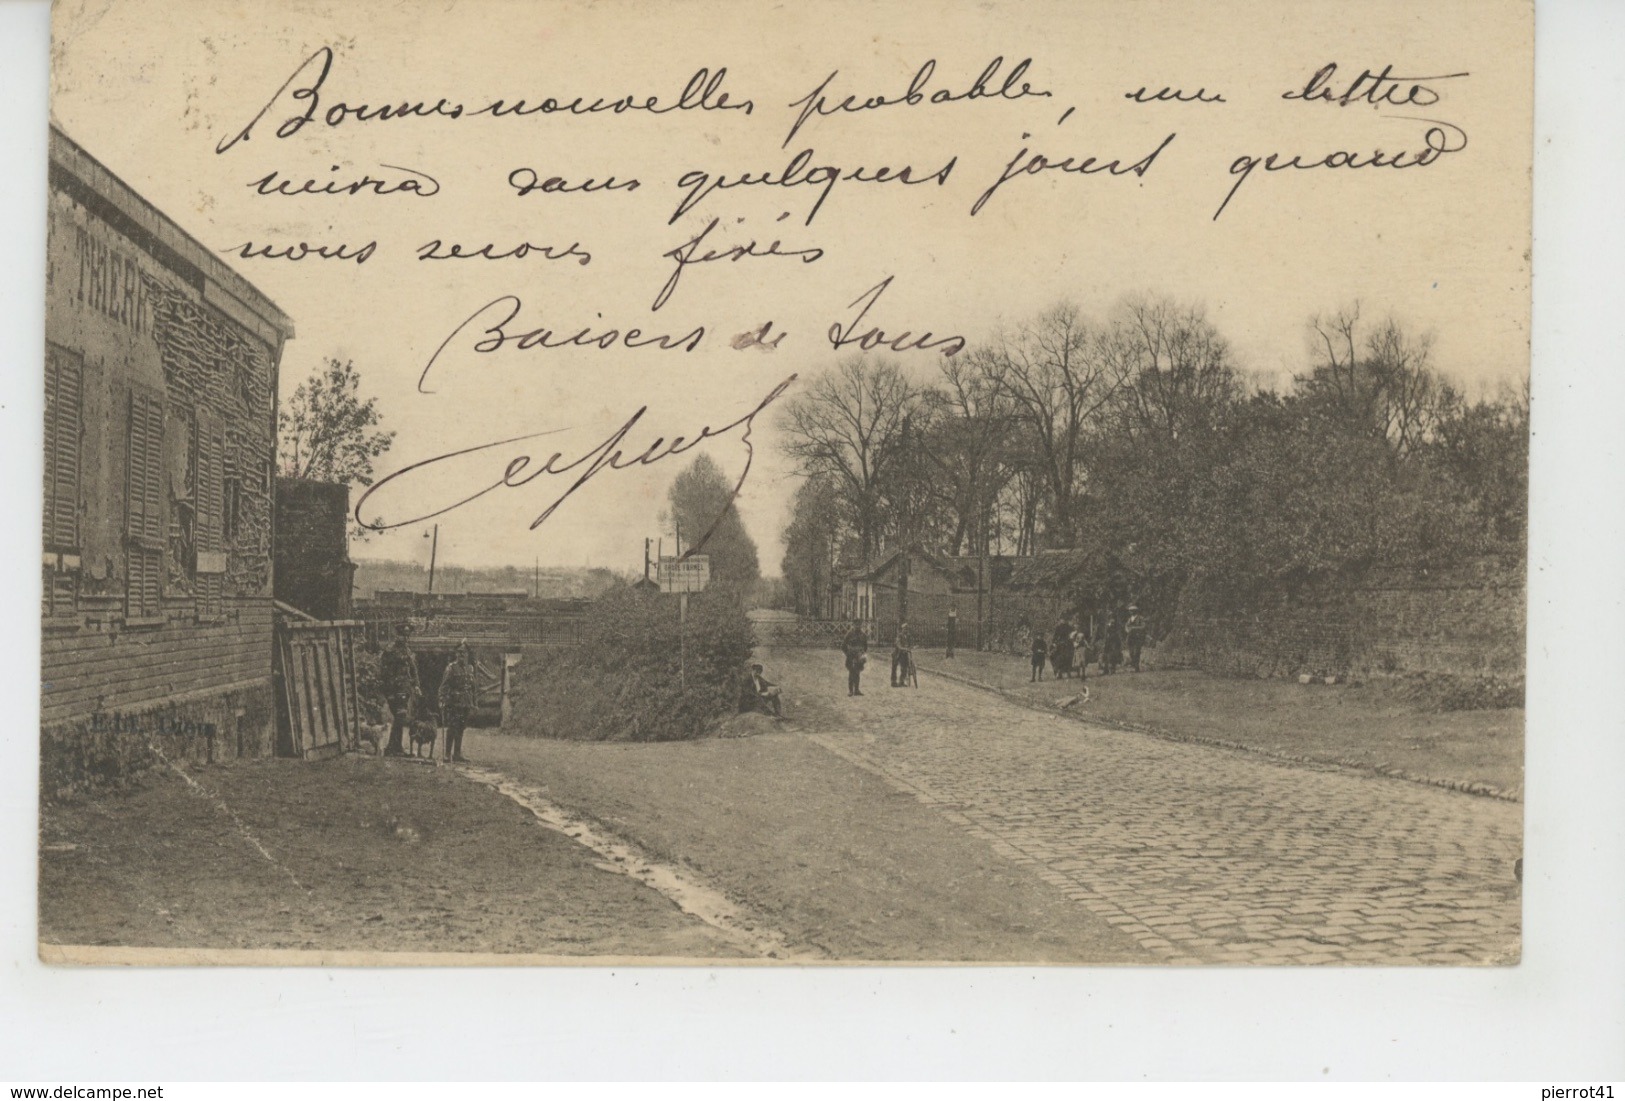 Bonnes nouvelles probables, une lettre
suivra dans quelques jours quand
nous serons fixés
Baisers de Tous
THIERR
Edit. Dion
www.delcampe.net
pierrot41